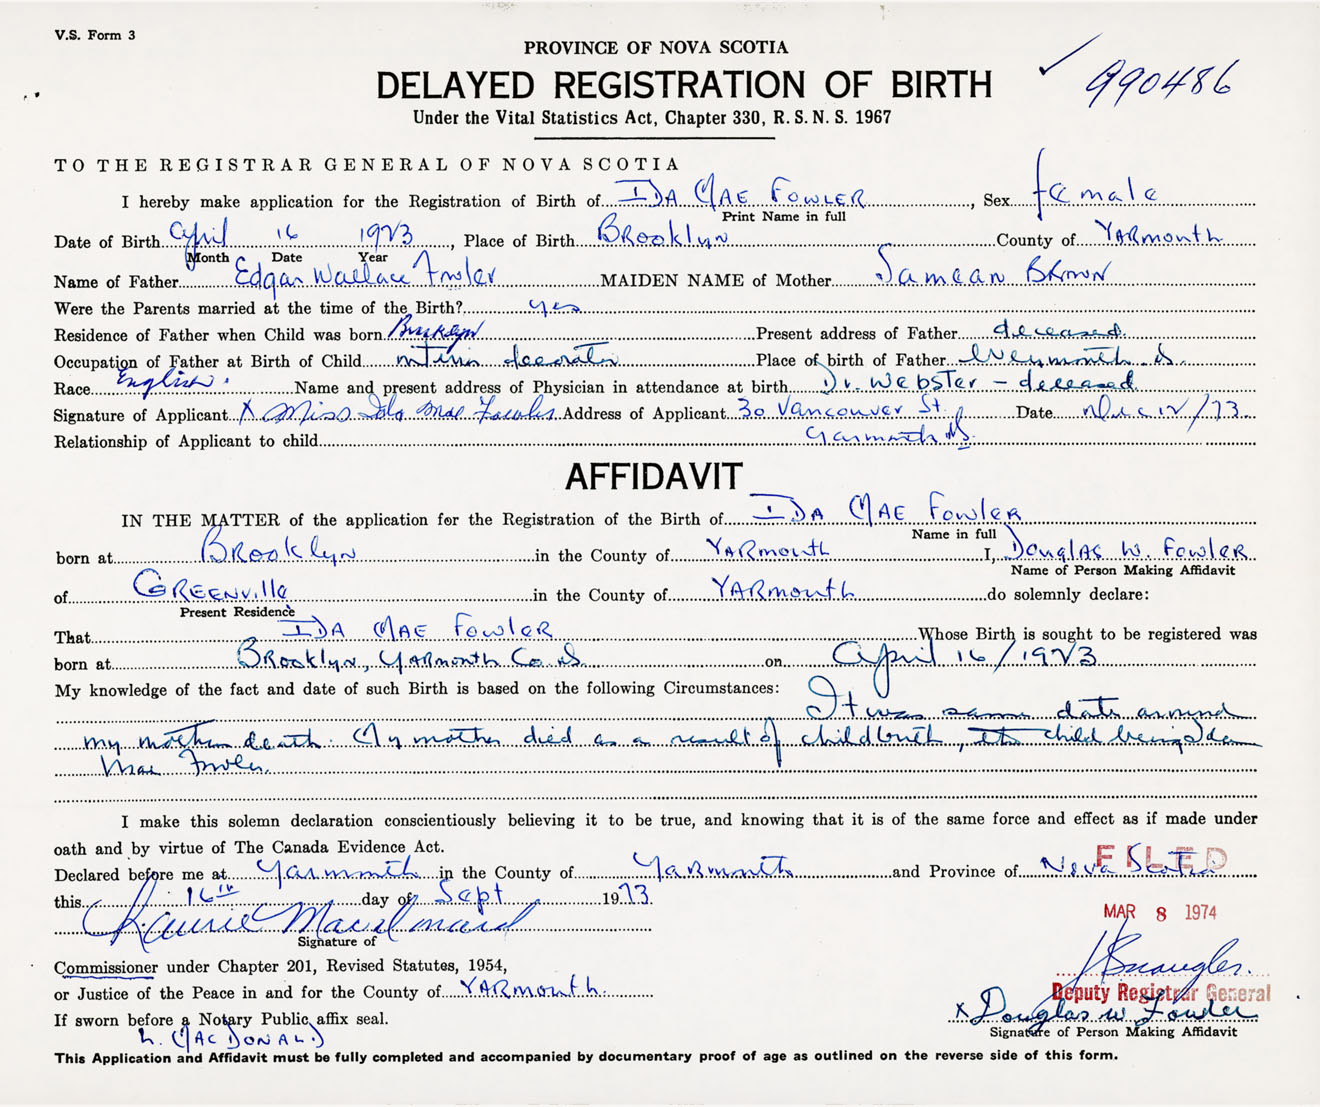 V.S. Form 3
PROVINCE OF NOVA SCOTIA
DELAYED REGISTRATION OF BIRTH
990486
Under the Vital Statistics Act, Chapter 330, R. S. N. S. 1967
TO THE REGISTRAR GENERAL OF NOVA SCOTIA
I hereby make application for the Registration of Birth of IDA MAE FOWLER, Sex female
Print Name in full
Date of Birth April 16 1923, Place of Birth Brooklyn County of YARMOUTH
Month Date Year
Name of Father Edgar Wallace Fowler MAIDEN NAME of Mother Samean BROWN
Were the Parents married at the time of the Birth? yes
Residence of Father when Child was born Brooklyn Present address of Father deceased
Occupation of Father at Birth of Child decorator Place of birth of Father Weymouth
Race English. Name and present address of Physician in attendance at birth Dr. Webster - deceased
Signature of Applicant X Miss Ida Mae Fowler Address of Applicant 30 Vancouver St. Date Dec 12/73
Relationship of Applicant to child Yarmouth NS
AFFIDAVIT
IN THE MATTER of the application for the Registration of the Birth of IDA MAE Fowler
Name in full
born at Brooklyn in the County of YARMOUTH I, Douglas W. Fowler
Name of Person Making Affidavit
of Greenville in the County of YARMOUTH do solemnly declare:
Present Residence
That IDA MAE Fowler Whose Birth is sought to be registered was
born at Brooklyn, YARMOUTH Co. NS on April 16/1923
My knowledge of the fact and date of such Birth is based on the following Circumstances:
It was same date around
my mothers death. My mother died as a result of childbirth, the child being Ida
Mae Fowler.
I make this solemn declaration conscientiously believing it to be true, and knowing that it is of the same force and effect as if made under
oath and by virtue of The Canada Evidence Act.
Declared before me at Yarmouth in the County of Yarmouth and Province of Nova Scotia
FILED
this 16th day of Sept 1973
MAR 8 1974
Signature of
Commissioner under Chapter 201, Revised Statutes, 1954,
or Justice of the Peace in and for the County of YARMOUTH.
Deputy Registrar General
If sworn before a Notary Public affix seal.
X Douglas W Fowler
L. MACDONALD
Signature of Person Making Affidavit
This Application and Affidavit must be fully completed and accompanied by documentary proof of age as outlined on the reverse side of this form.